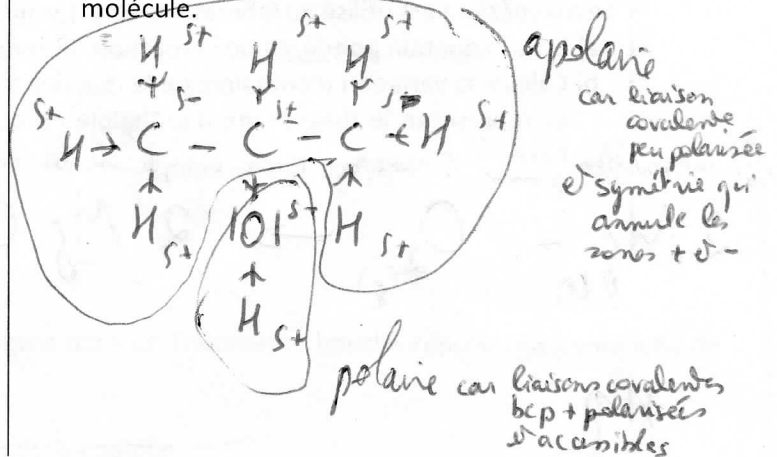 molécule.
δ+ δ+ δ+
H H H
δ+ δ- δ+ δ+
H → C – C – C ← H
H δ+ |O| δ- H δ+
H δ+
apolaire
car liaison
covalente
peu polarisée
et symétrie qui
annule les
zones + et -
polaire car liaisons covalentes
bcp + polarisées
et accessibles